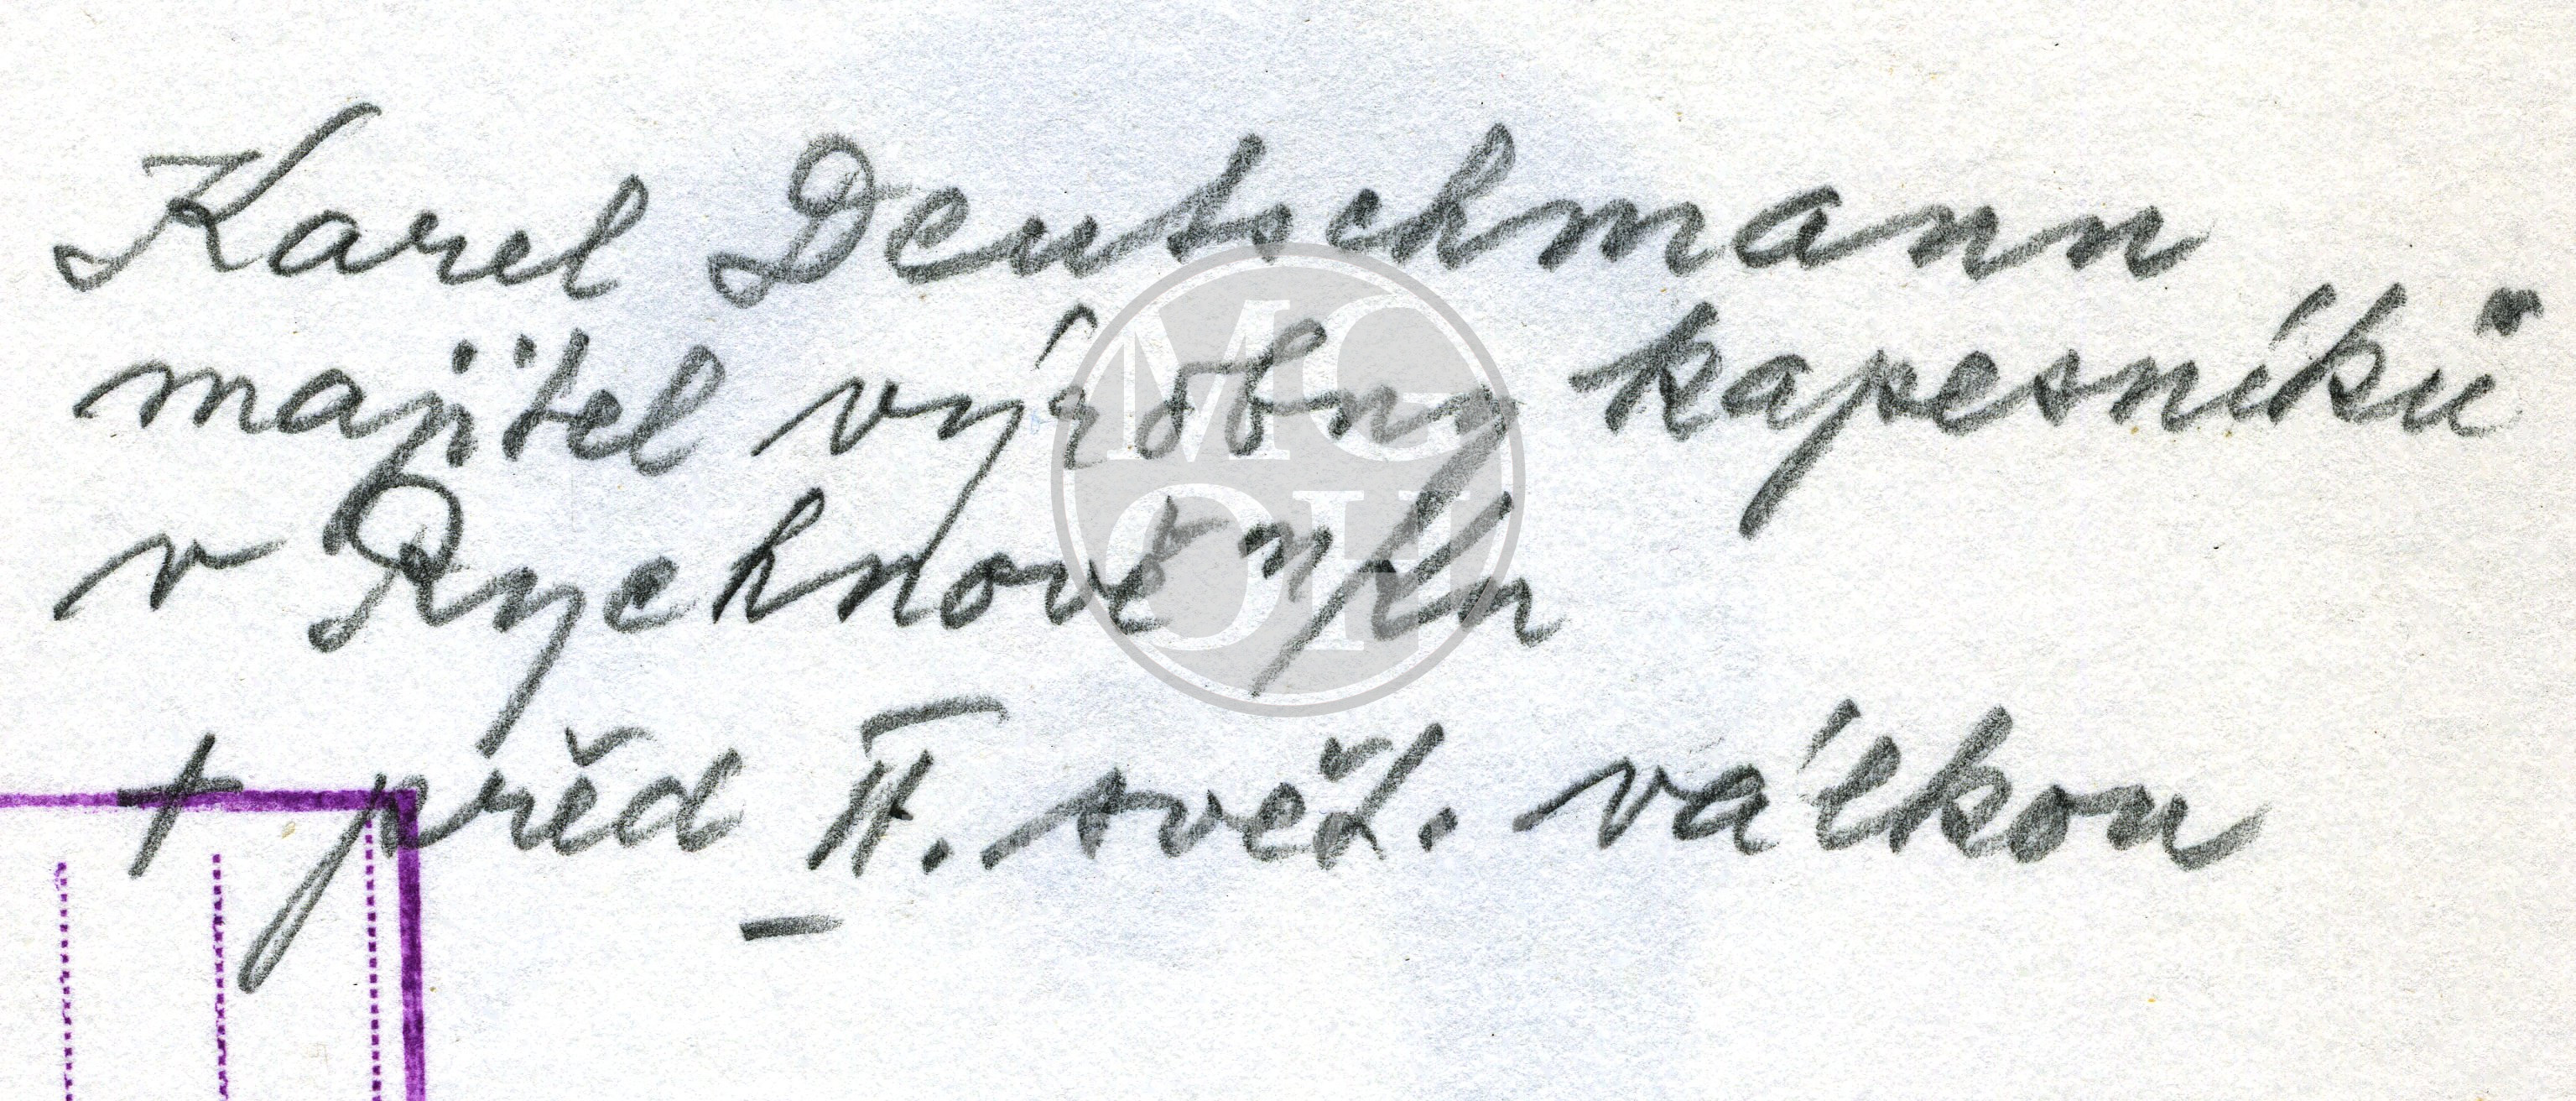 Karel Deutschmann
majitel výrobny kapesníků
v Rychnově n/Kn
+ před II. svět. válkou
MG
OH